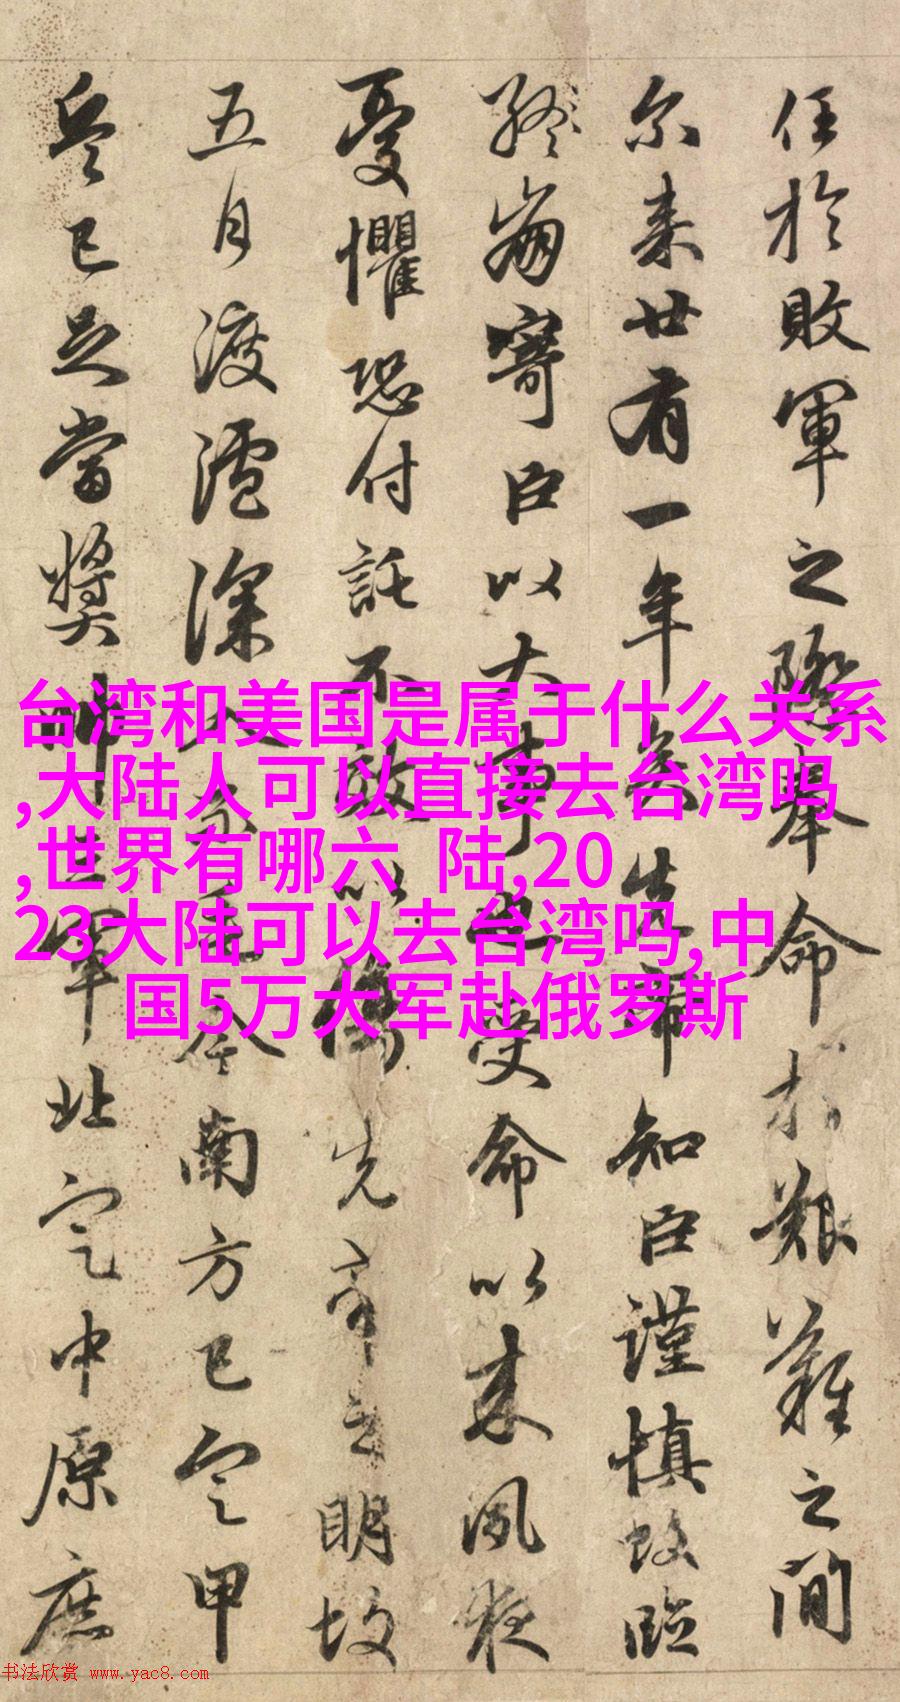 任於敗軍之際奉命於艱難之間
尔来廿有一年矣先帝知臣謹慎故臨
終崩寄臣以大事也受命以来夙夜
憂懼恐付託不效以傷先帝之明故
五月渡瀘深入不毛今南方已定甲
兵已足當奬帥三軍北定中原庶
台湾和美国是属于什么关系
,大陆人可以直接去台湾吗
,世界有哪六 陆,20
23大陆可以去台湾吗,中
国5万大军赴俄罗斯
书法欣赏 www.yac8.com